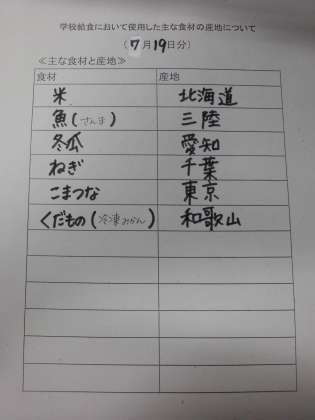 学校給食において使用した主な食材の産地について
(7月19日分)
≪主な食材と産地≫
食材 産地
米 北海道
魚(さんま) 三陸
冬瓜 愛知
ねぎ 千葉
こまつな 東京
くだもの(冷凍みかん) 和歌山